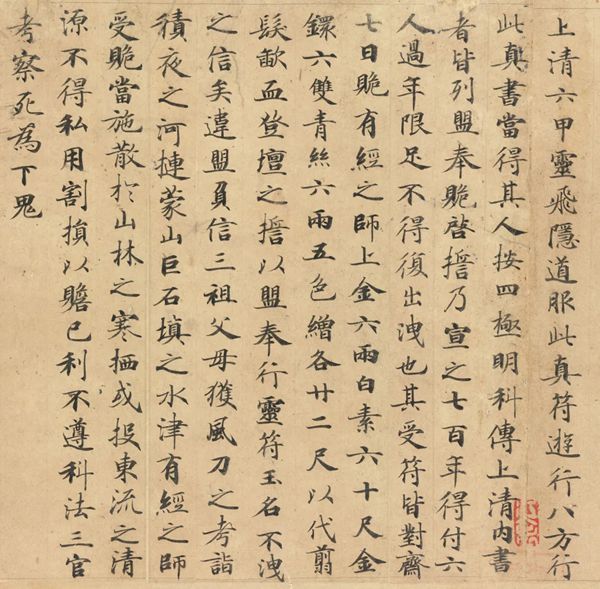 上清六甲靈飛隱道服此真符遊行八方行
此真書當得其人按四極明科傳上清內書
者皆列盟奉賝啓撎乃宣之七百年得付六
人過年限足不得復出洩也其受符皆對齋
七日賝有經之師上金六兩白素六十尺金
鐶六雙青絲六兩五色繒各廿二尺以代翦
髮歃血登壇之撎以盟奉行靈符玉名不洩
之信矣違盟負信三祖父母獲風刀之考詣
積夜之河摙蒙山巨石填之水津有經之師
受賝當施散於山林之寒栖或投東流之清
源不得私用割損以贍己利不遵科法三官
考察死為下鬼